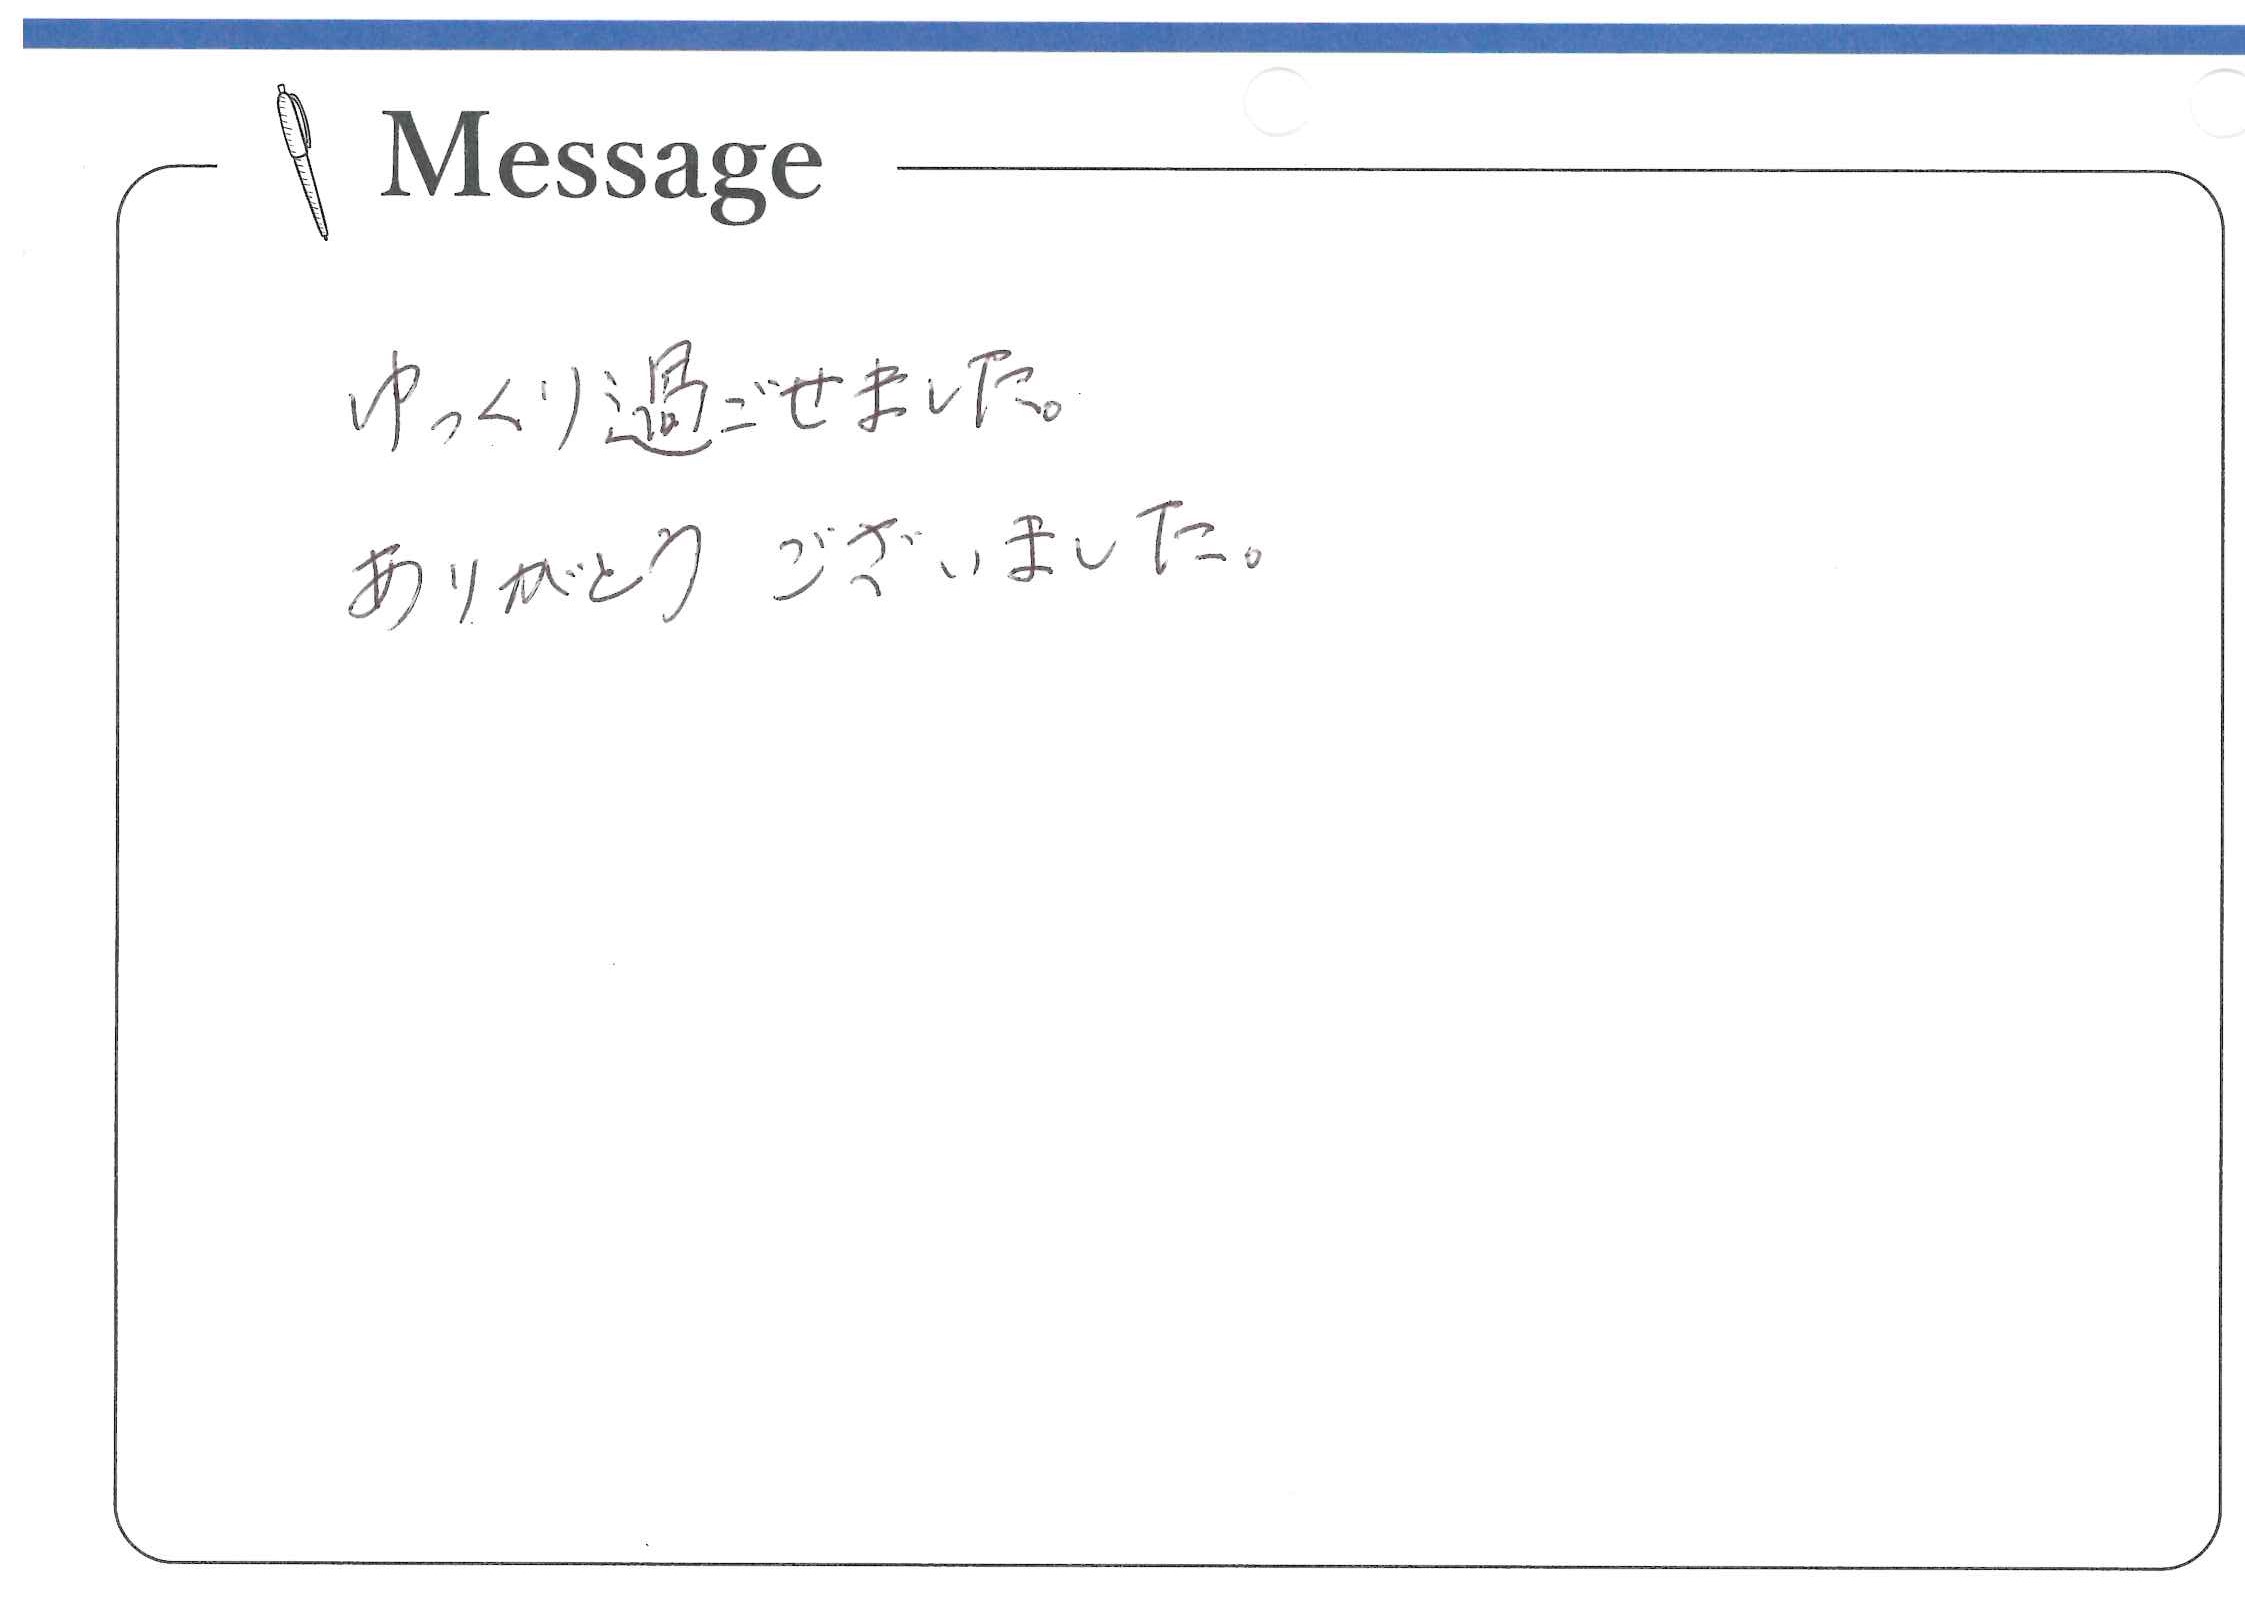 Message
ゆっくり過ごせました。
ありがとうございました。